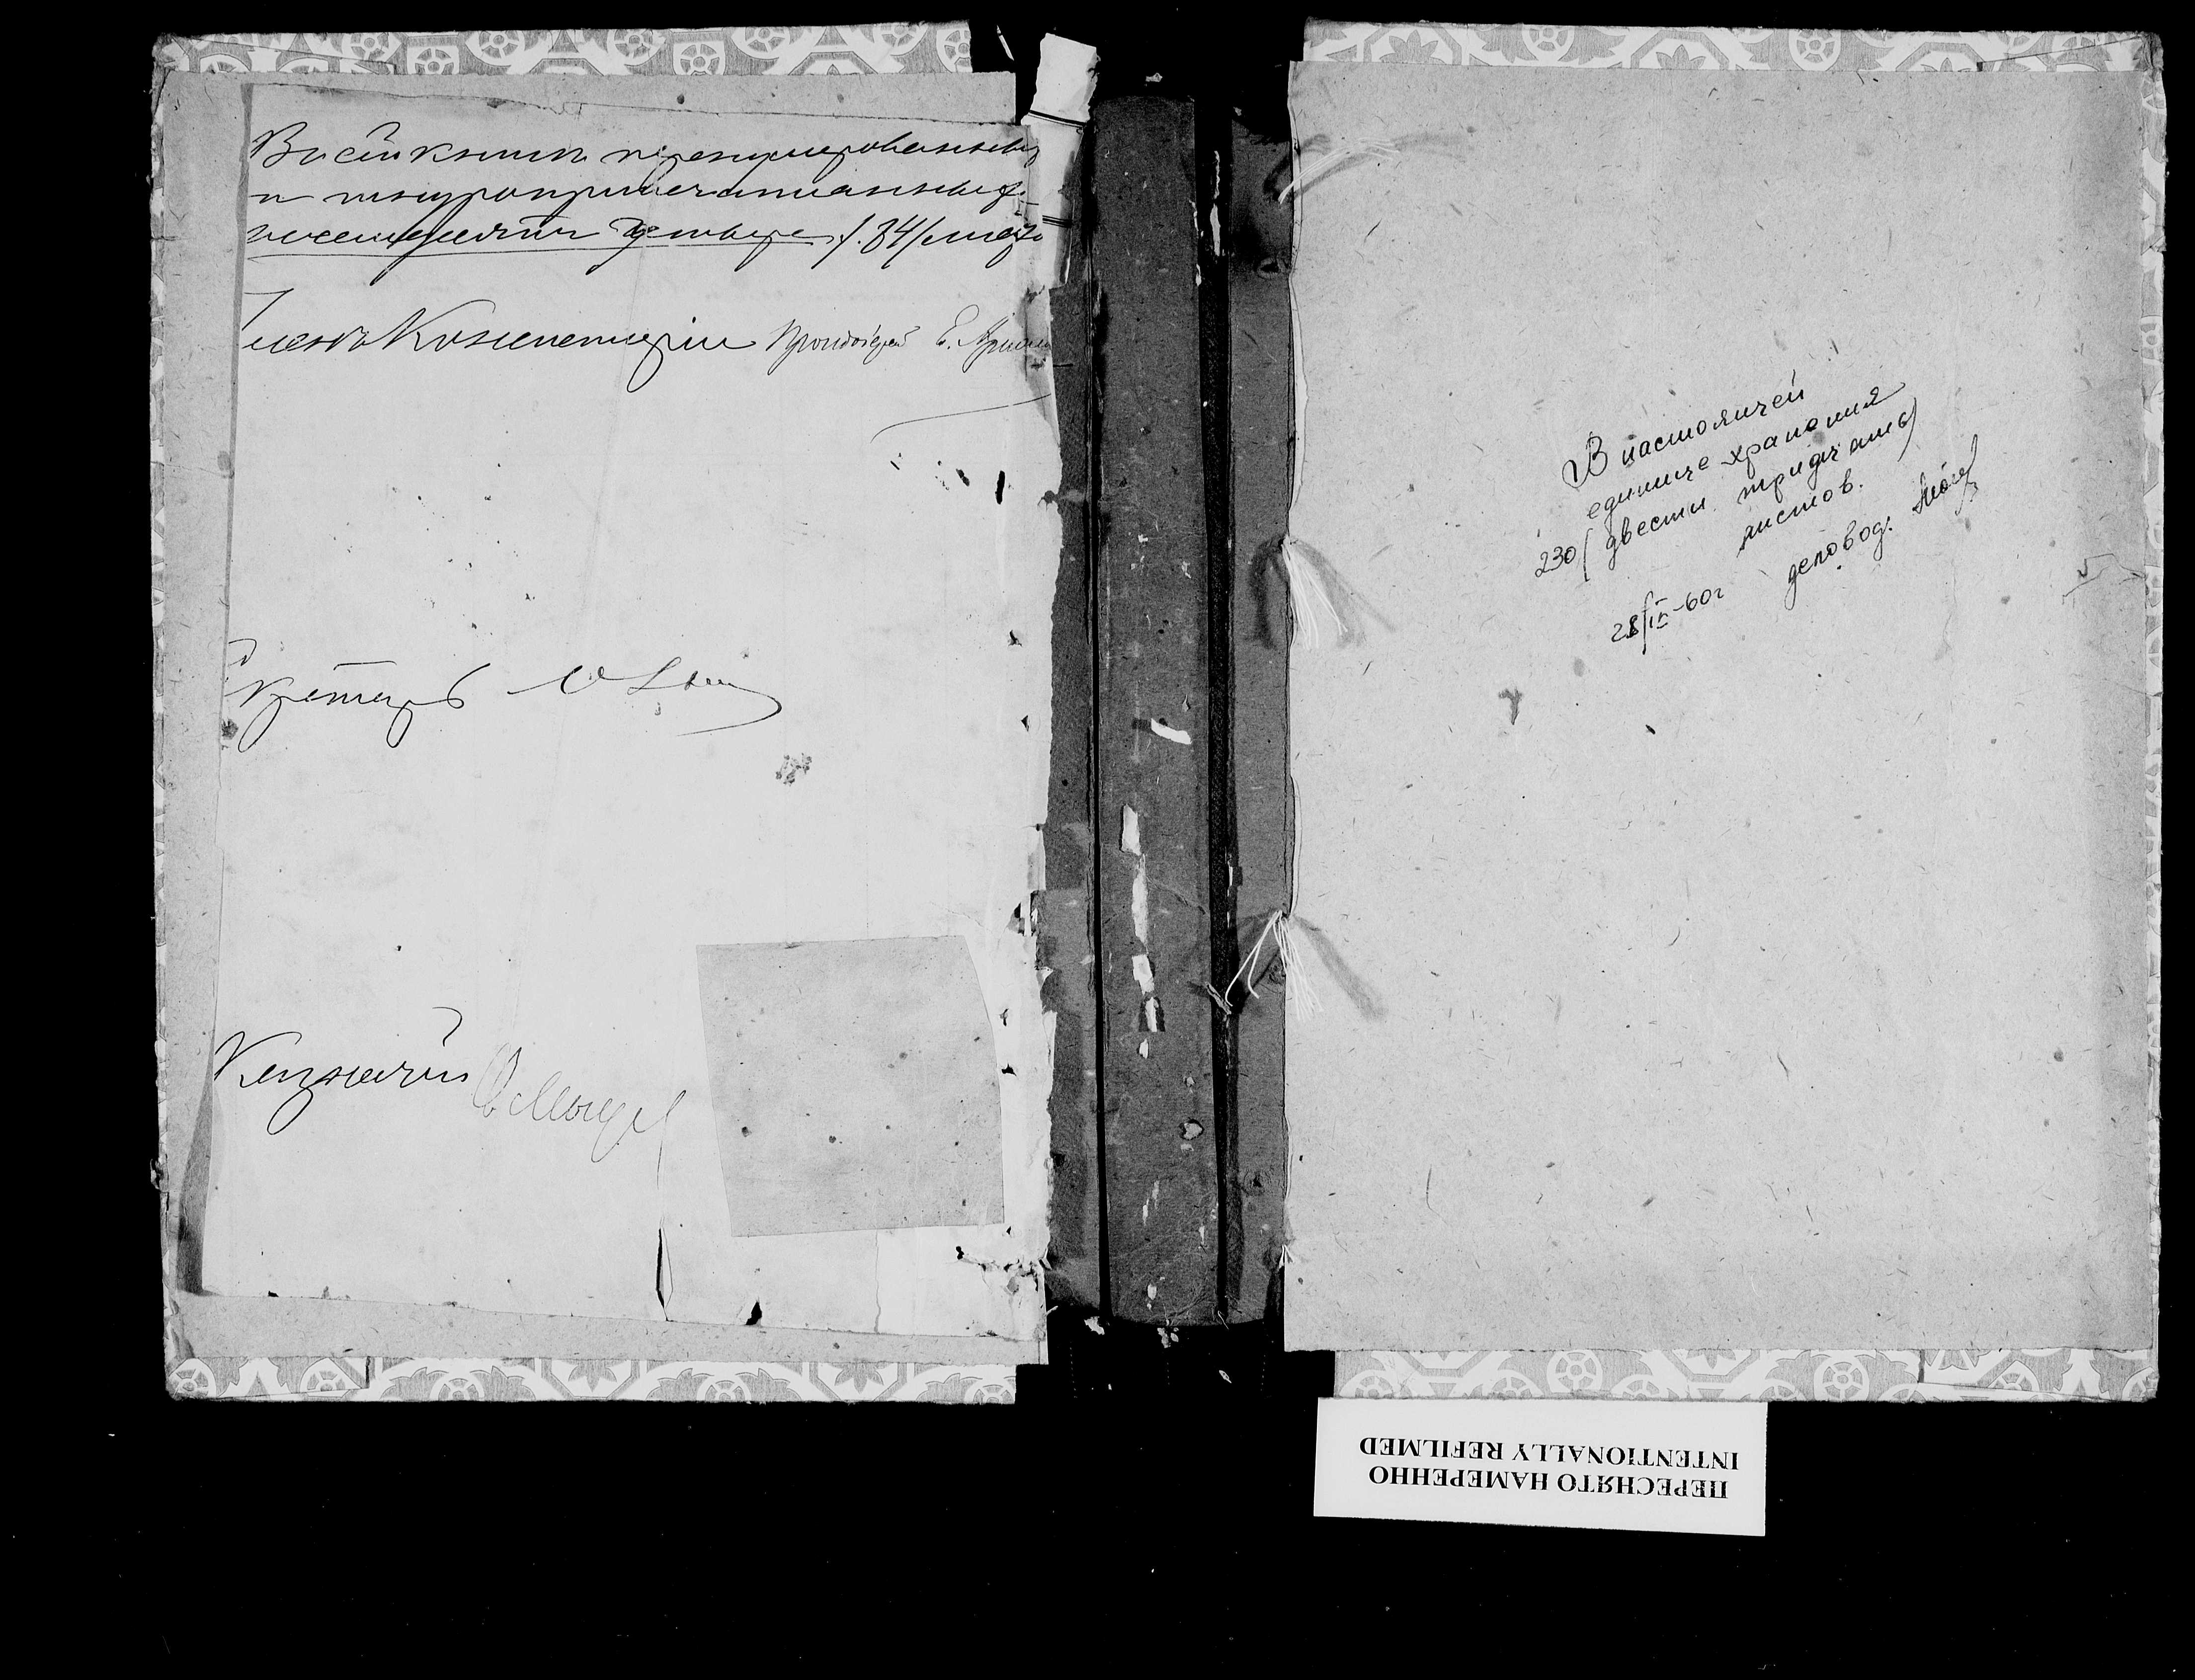 Въ сей книги пронумерованныхъ
и шнуроприпечатанныхъ
восемьдесятъ четыре /. 84/ листа
Членъ Консисторіи Протоіерей Е.
Секретарь
Казначей
В настоящей
единице хранения
230 (двести тридцать)
листов.
28/IV-60г деловод.
ПЕРЕСНЯТО НАМЕРЕННО
INTENTIONALLY REFILMED